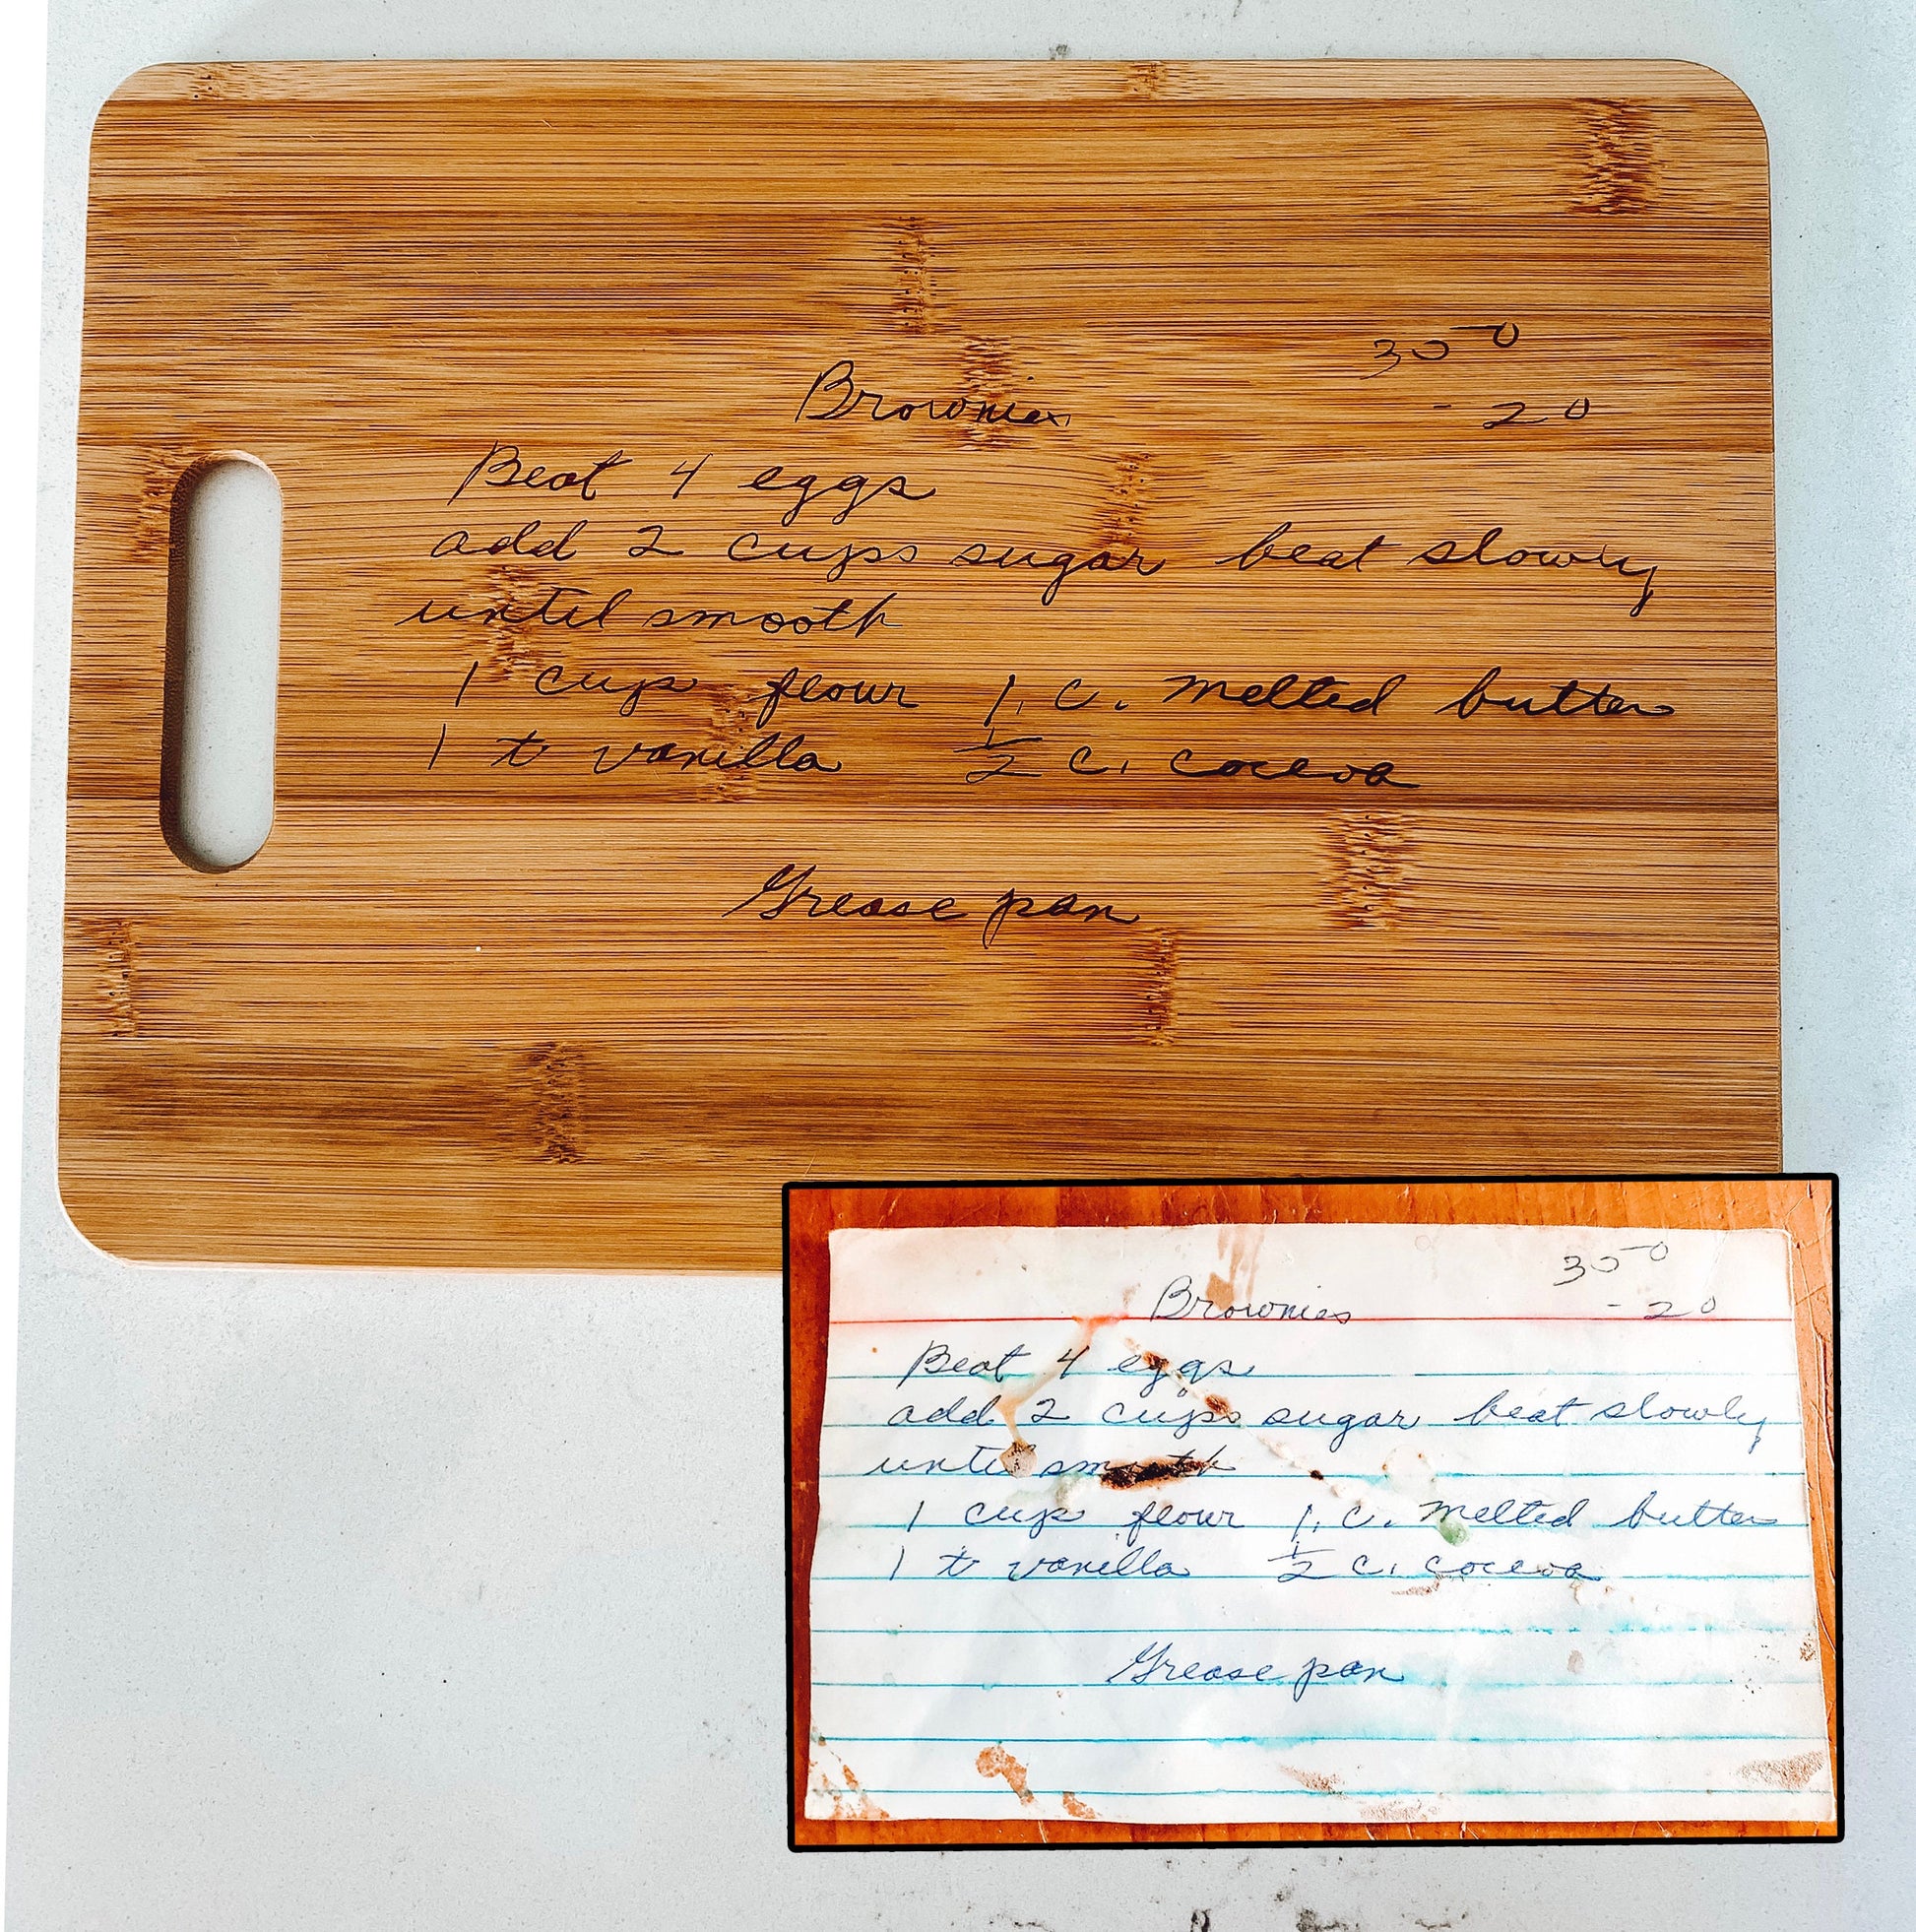 350
Brownies
- 20
Beat 4 eggs
add 2 cups sugar beat slowly
until smooth
1 cup flour 1. c. melted butter
1 t vanilla 1/2 c. cocoa
Grease pan
350
Brownies
- 20
Beat 4 eggs
add 2 cups sugar beat slowly
until smooth
1 cup flour 1. c. melted butter
1 t vanilla 1/2 c. cocoa
Grease pan